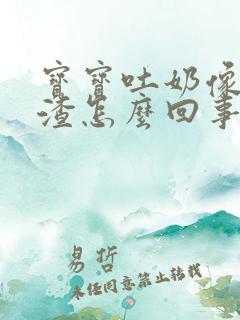 寶寶吐奶像
渣怎麼回事
易哲
未經同意禁止轉載